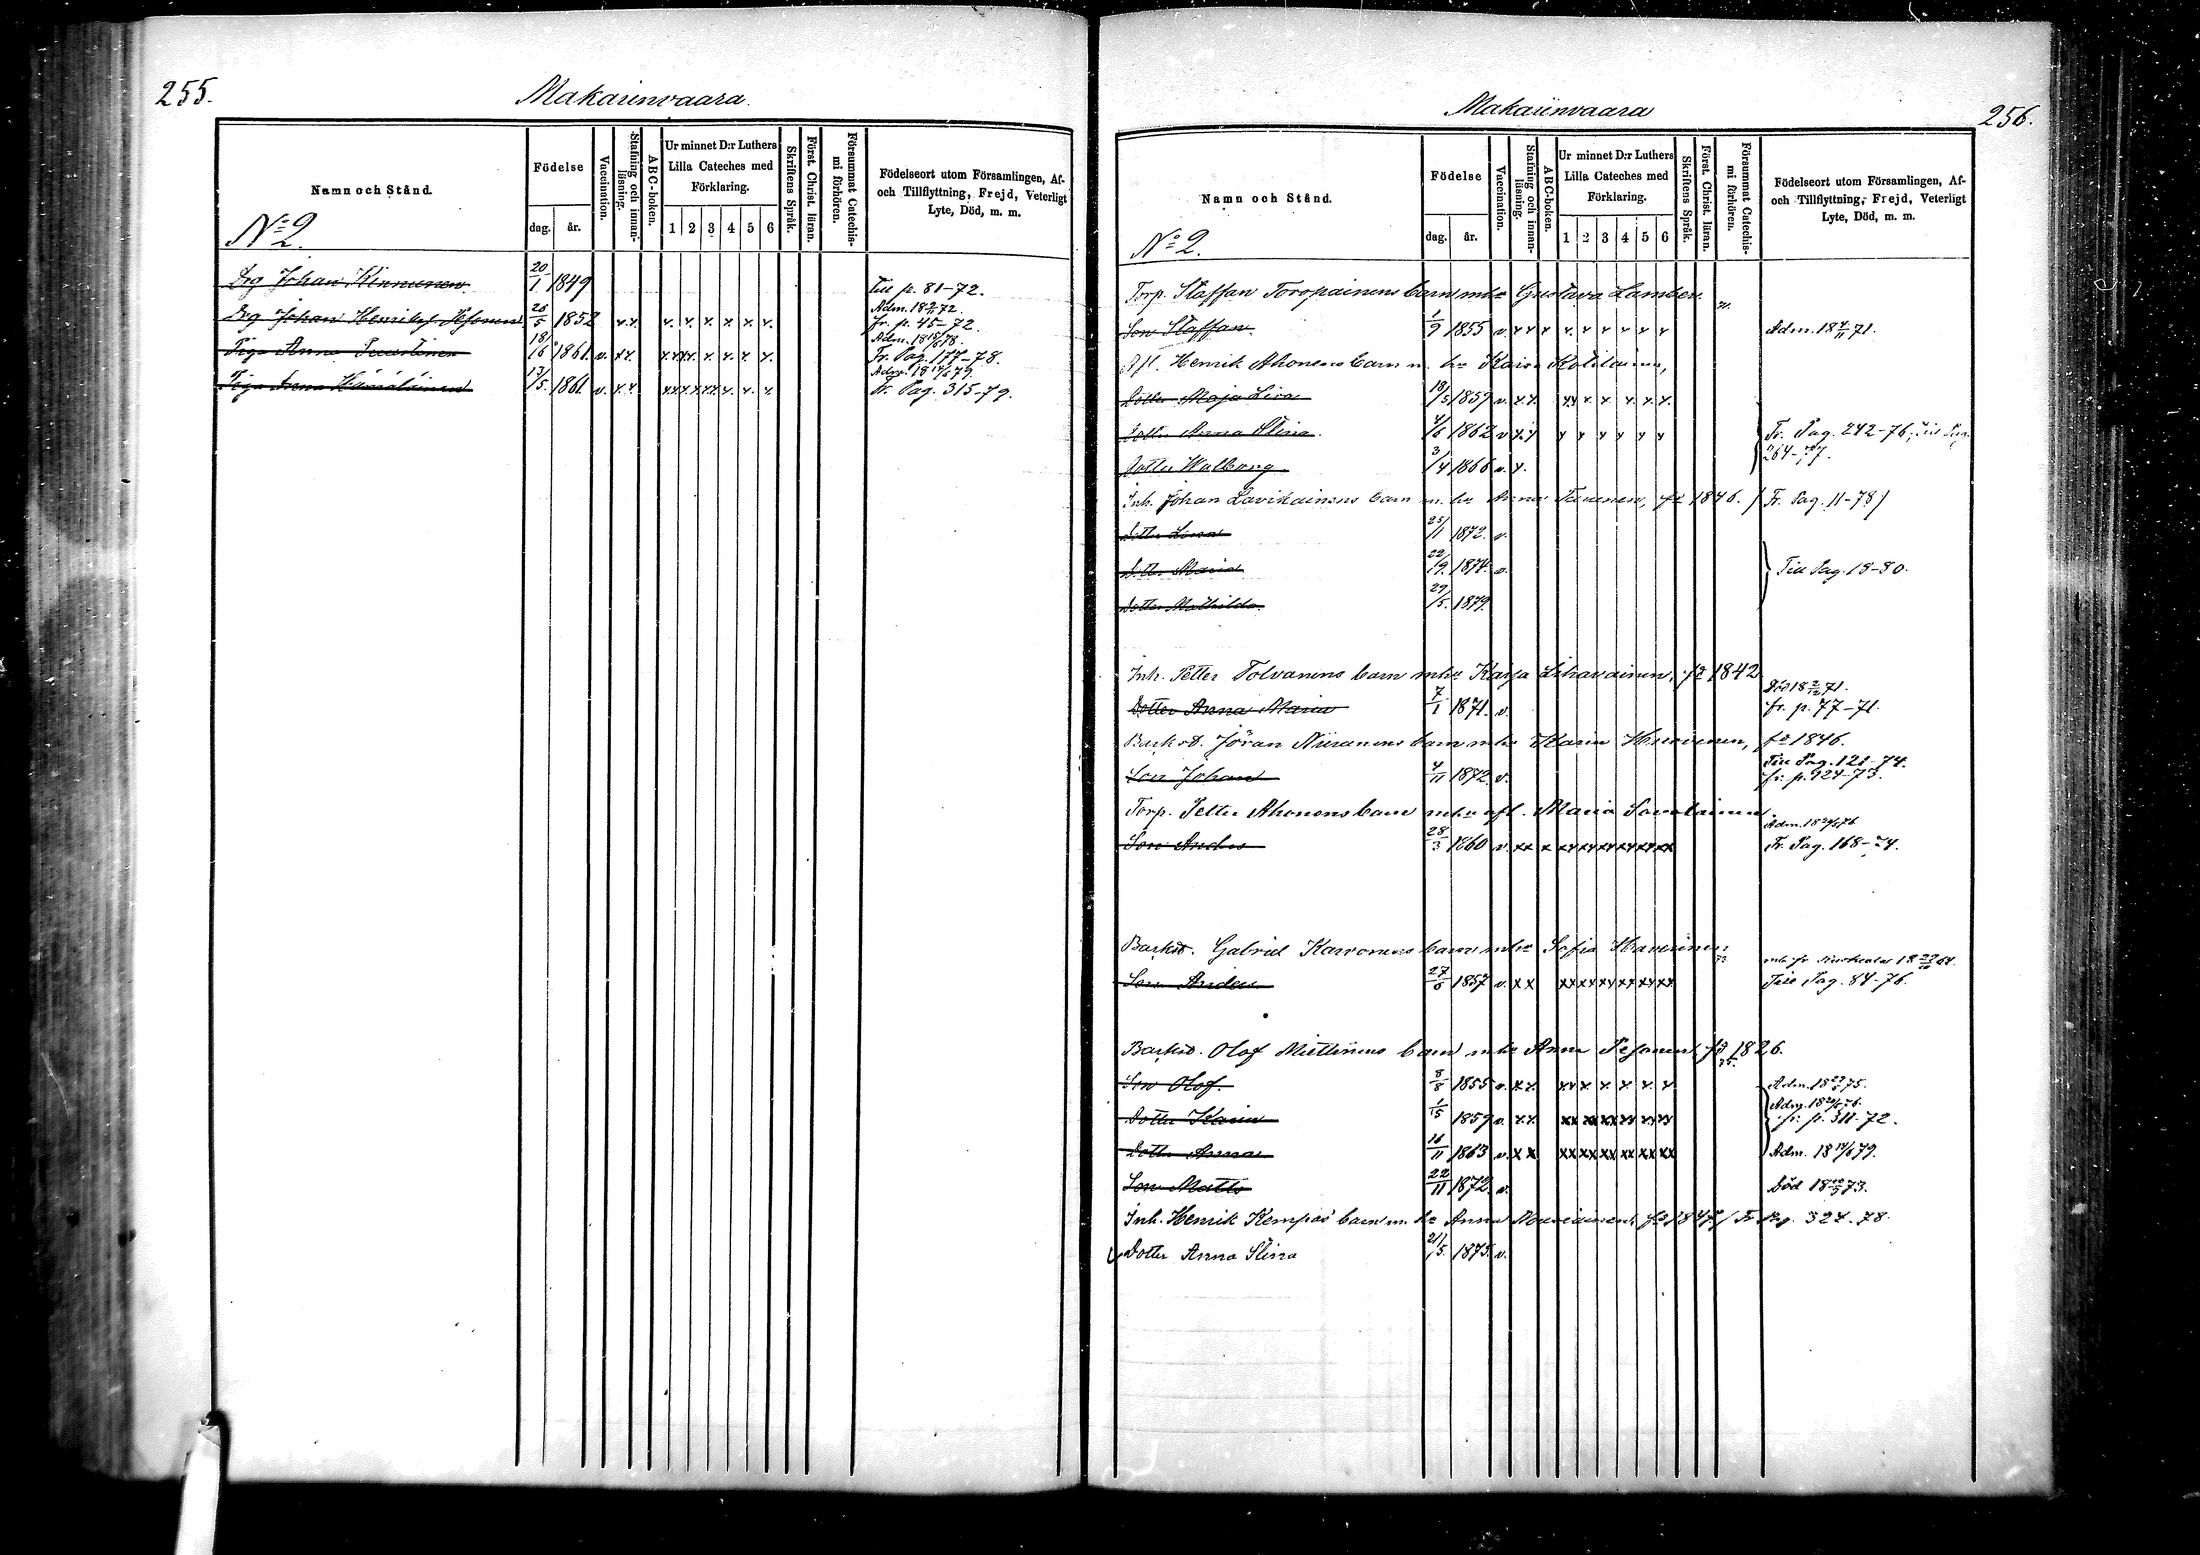 255.
Makarinvaara.
Namn och Stånd.
Födelse
dag.
år.
Vaccination.
Stafning och innanläsning.
ABC-boken.
Ur minnet D:r Luthers
Lilla Cateches med
Förklaring.
1 2 3 4 5 6
Skriftens Språk.
Först. Christ. läran.
Försummat Catechismi förhören.
Födelseort utom Församlingen, Af-
och Tillflyttning, Frejd, Veterligt
Lyte, Död, m. m.
No 2.
Drg Johan Kinnunen 20/1 1849 Till p. 81-72.
Adm. 18 71 72.
Drg Johan Henriks. 26/5 1852 x.x. x. x. x. x. x. x. fr. p. 45-72.
Piga Anna 18/6 1861 v. x x. Fr. Pag. 177-78.
Piga Anna Hämäläinen 13/5 1861 v. x.x. Fr. Pag. 315-79.
Makarinvaara
256.
Namn och Stånd.
Födelse
dag.
år.
Vaccination.
Stafning och innanläsning.
ABC-boken.
Ur minnet D:r Luthers
Lilla Cateches med
Förklaring.
1 2 3 4 5 6
Skriftens Språk.
Först. Christ. läran.
Försummat Catechismi förhören.
Födelseort utom Församlingen, Af-
och Tillflyttning, Frejd, Veterligt
Lyte, Död, m. m.
No 2.
Torp. Staffan Toropainens barn m. hu Gustava Lamberg
Son Staffan 1/9 1855 v. x x x x. x. x x x x Adm. 18 71.
Afl. Henrik Ahonens barn m. hu Kaisa
Dotter Maja Lisa 18/5 1859 v. x.x. xx x. x x. x. x.
Dotter Anna Stina 4/6 1862 v x x x x x x x x Fr. Pag. 242-76, Till Pag.
264-77.
Dotter Walborg 3/4 1866 v. x.
Inh. Johan Lavikainens barn m. hu Anna 1846. Fr. Pag. 11-78
Dotter Lovisa 25/11 1872. v.
Dotter Maria 22/9 1874. v. Till Pag. 18-80.
Dotter Mathilda 29/5. 1879
Inh. Petter Tolvanens barn m hu Kajsa 1842
Död 18 2/12 71.
Dotter Anna Maria 7/1 1871. v. fr. p. 77-71.
Backst. Jöran Niiranens barn m hu Karin Hurvinen, 1846.
Till Pag. 121-74.
Son Johan 4/11 1872. v. fr. p. 124-73.
Torp. Petter Ahonens barn m hu afl. Maria Savolainen
Son Anders 28/3 1860 v. xx x xx xx xx xx xx xx Fr. Pag. 168-74.
Backst. Gabriel Karvonens barn m hu Sofia
Son Anders 27/6 1857 v. x x xx xx xx xx xx xx Till Pag. 84-76.
Backst. Olof Miettinens barn m hu Anna 1826.
Son Olof. 8/8 1855 v. x x. xx x x x x. x Adm. 18 75.
Dotter Karin 1/5 1859 v. x.x. xx xx xx xx xx xx fr. p. 311-72.
Dotter Anna 16/11 1863 v. x x xx xx xx xx xx xx Adm. 18 79.
Son Matts 22/11 1872. v. Död 18 73.
Inh. Henrik Kempas' barn m. hu Anna 1847 Fr Pag. 324-78.
Dotter Anna Stina 21/5. 1875. v.